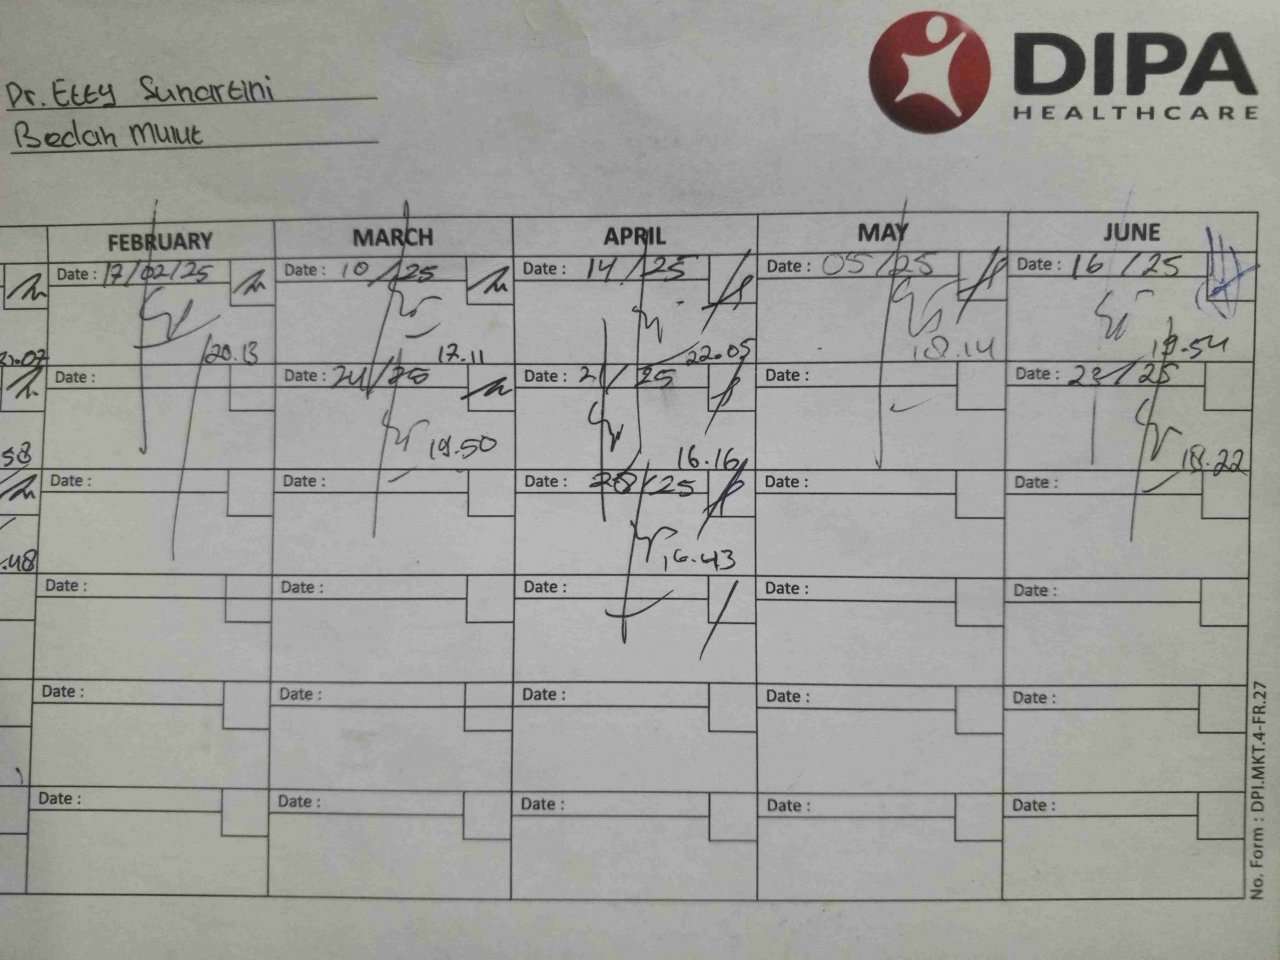 DIPA
HEALTHCARE
Dr. Etty Sunartini
Bedah Mulut
FEBRUARY MARCH APRIL MAY JUNE
Date : 17/02/25 Date : 10 /25 Date : 14 /25 Date : 05/25 Date : 16 /25
20.13 17.11 22.05 18.14 19.54
Date : Date : 24/25 Date : 21/25 Date : Date : 23/25
58 19.50 16.16 18.22
Date : Date : Date : 28/25 Date : Date :
.48 16.43
Date : Date : Date : Date : Date :
Date : Date : Date : Date : Date :
Date : Date : Date : Date : Date :
No. Form : DPI.MKT.4-FR.27